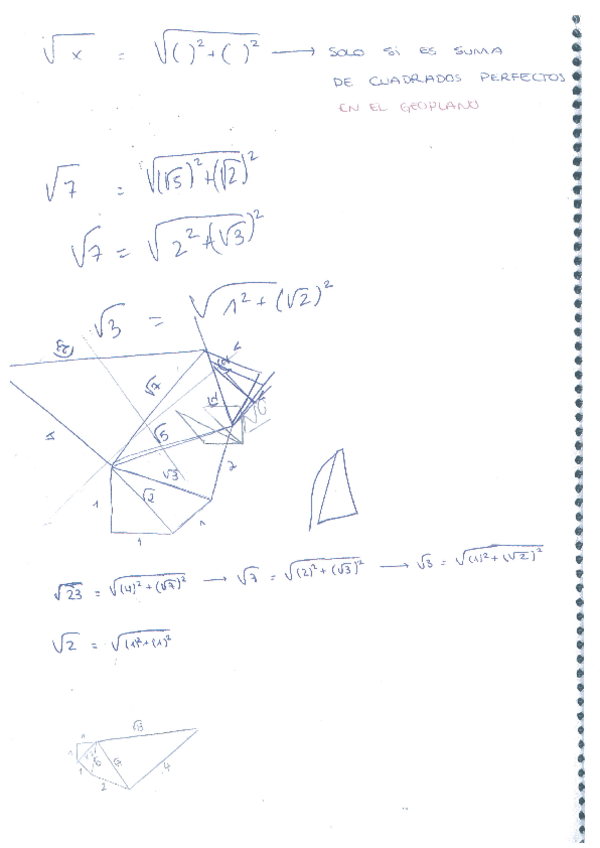 √x = √( )² + ( )² → SOLO SI ES SUMA
DE CUADRADOS PERFECTOS
EN EL GEOPLANO
√7 = √(√5)² + (√2)²
√7 = √2² + (√3)²
√3 = √1² + (√2)²
√23
√7
4
√5
√3
√2
2
1
1
1
√23 = √(4)² + (√7)² → √7 = √(2)² + (√3)² → √3 = √(1)² + (√2)²
√2 = √(1)² + (1)²
1
2
4